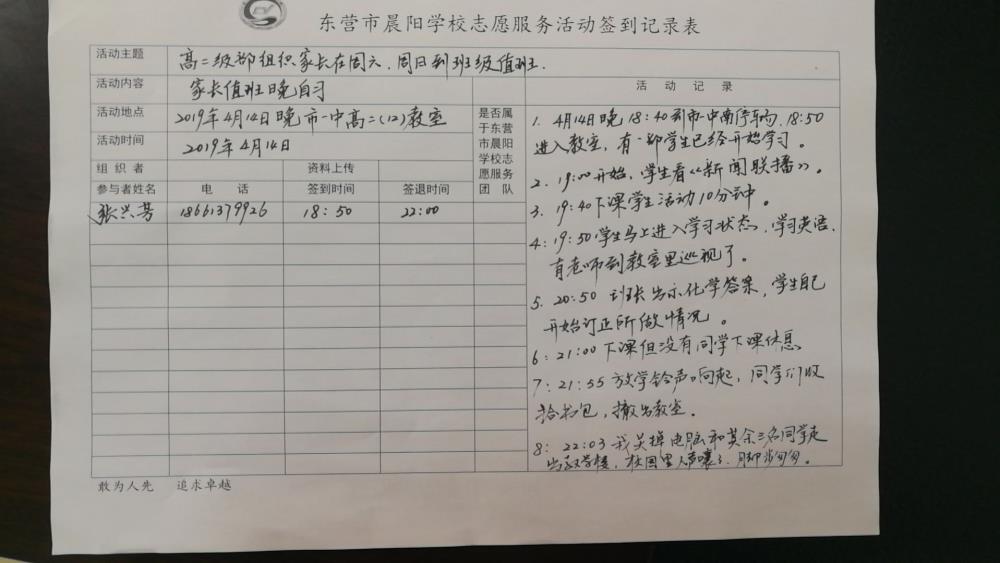 东营市晨阳学校志愿服务活动签到记录表
活动主题 高二级部组织家长在周六、周日到班级值班.
活动内容 家长值班晚自习
活动地点 2019年4月14日晚市一中高二(12)教室
活动时间 2019年4月14日
组织者 资料上传
参与者姓名 电话 签到时间 签退时间
张兴芳 18661379926 18:50 22:00
是否属
于东营
市晨阳
学校志
愿服务
团队
活动记录
1. 4月14日晚18:40到市一中南停车场, 18:50
进入教室, 有一部学生已经开始学习。
2. 19:00开始, 学生看《新闻联播》。
3. 19:40下课学生活动10分钟。
4: 19:50学生马上进入学习状态, 学习英语,
有老师到教室里巡视了。
5. 20:50 班长出示化学答案, 学生自己
开始订正所做情况。
6: 21:00下课但没有同学下课休息
7: 21:55 放学铃声响起, 同学们收
拾书包, 撤出教室.
8: 22:03 我关掉电脑和其余三名同学走
出教学楼, 校园里人声嚷,脚步匆匆。
敢为人先 追求卓越